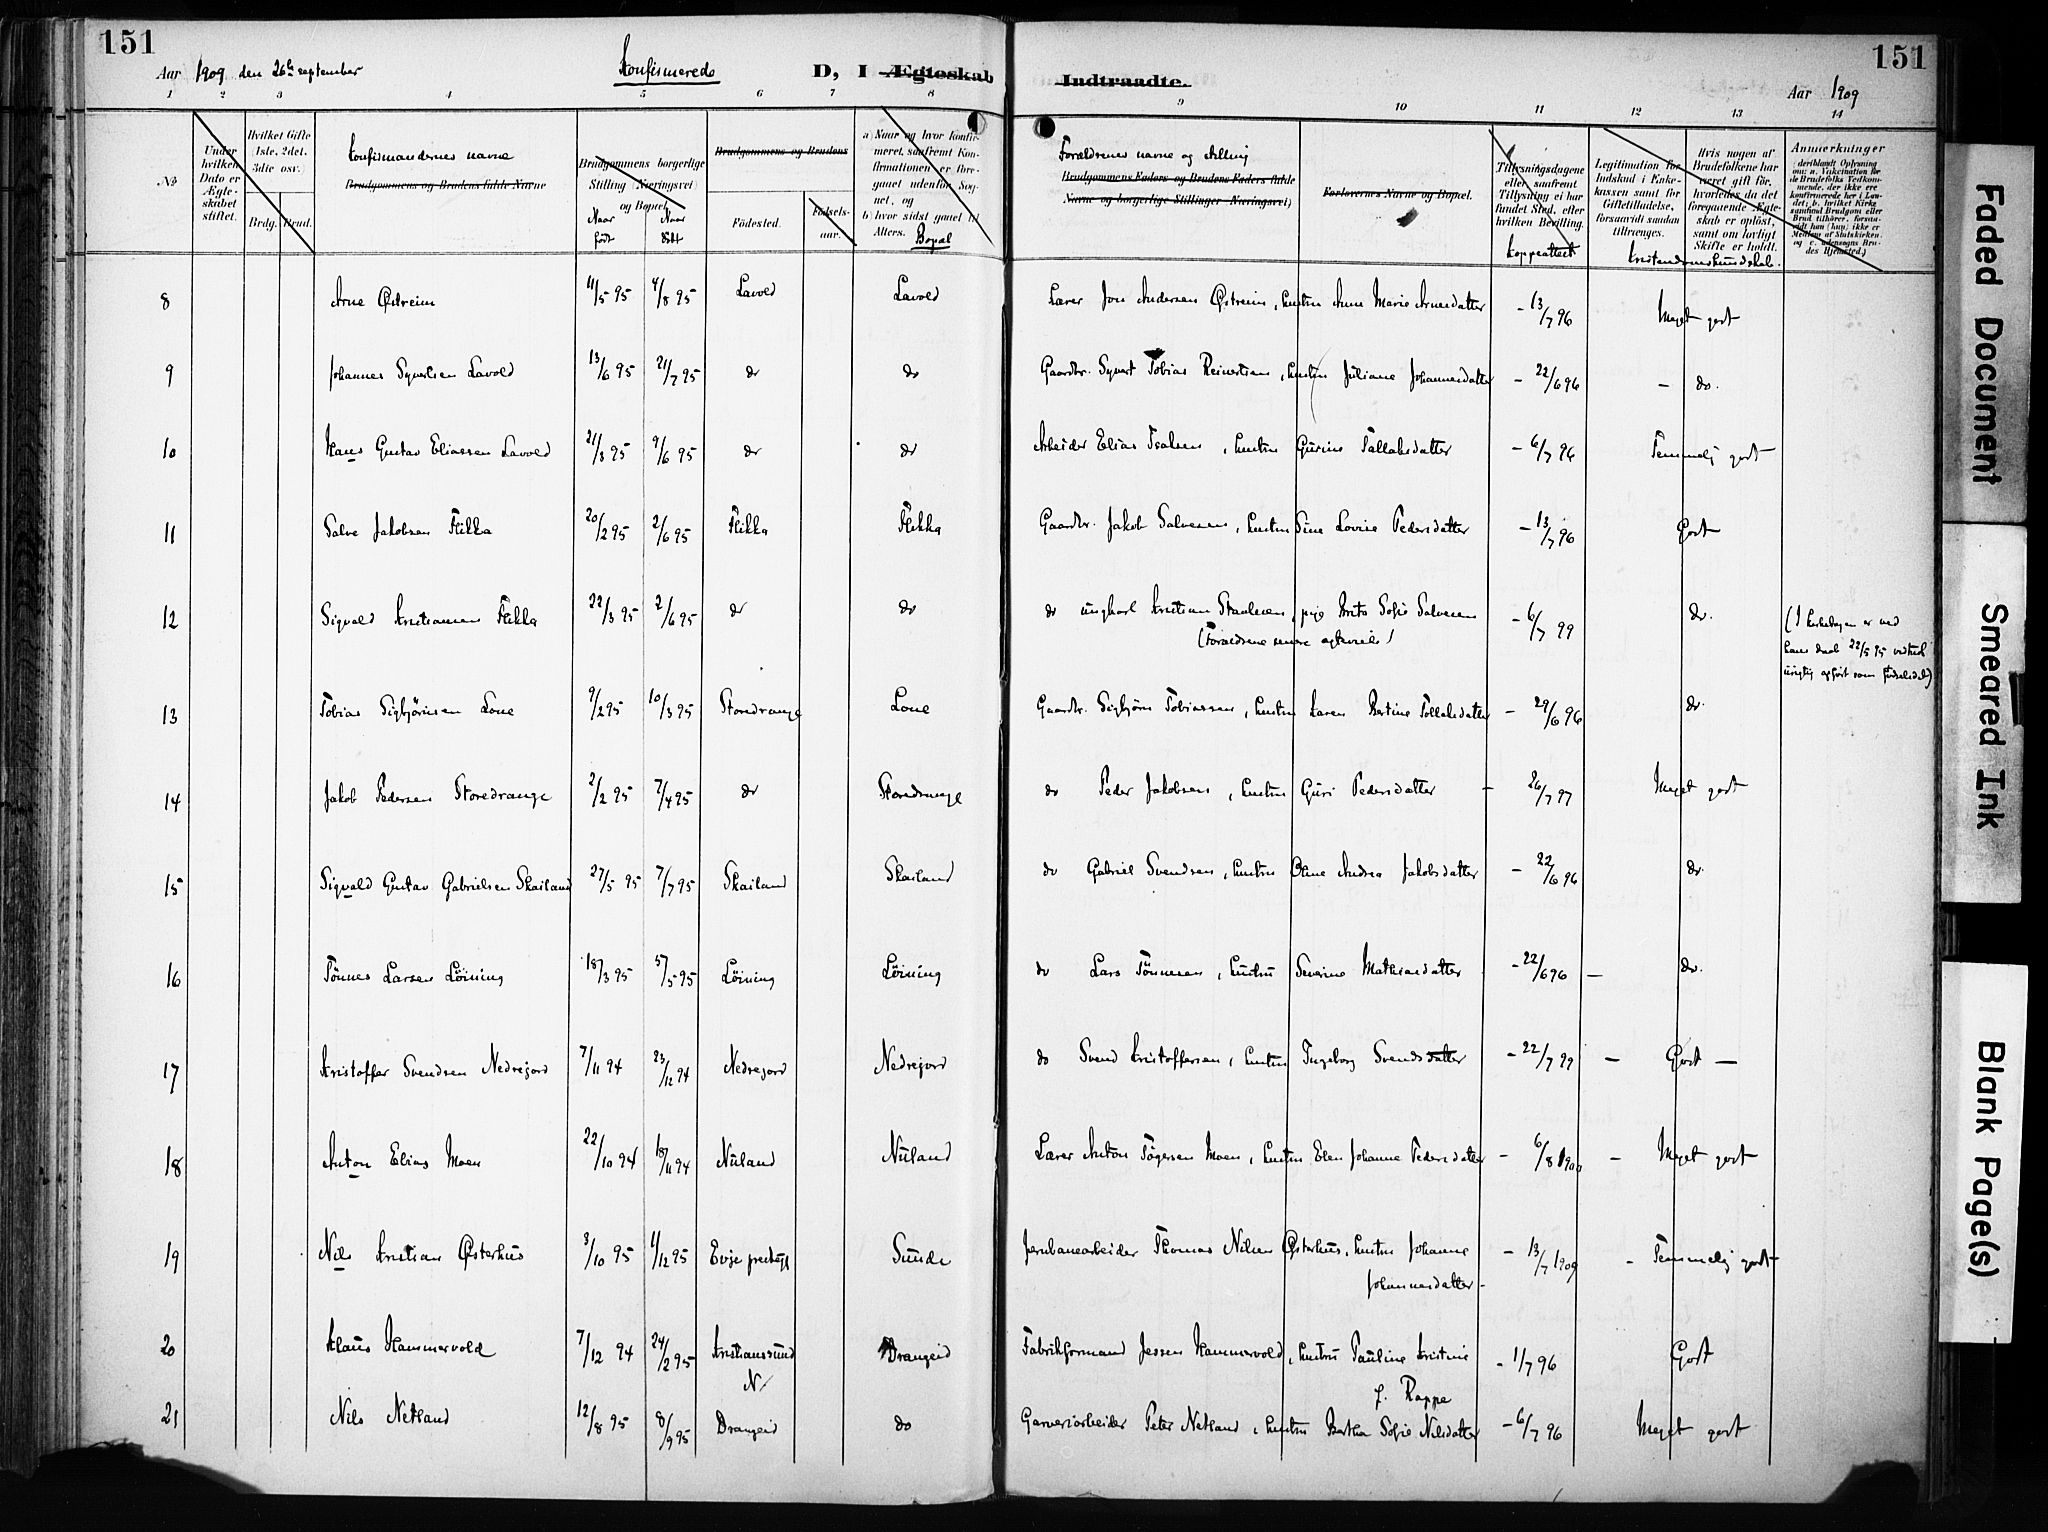 151
151
Aar 1909 den 26de september
Konfirmerede
D, I Ægteskab Indtraadte.
Aar 1909
1 2 3 4 5 6 7 8 9 10 11 12 13 14
No
Under hvilken Dato er Ægteskabet stiftet.
Hvilket Gifte (1ste, 2det, 3die osv.)
Brdg. Brud.
Konfirmandernes navne
Brudgommens og Brudens fulde Navne
Brudgommens borgerlige Stilling (Næringsvei) og Bopæl
Naar født
Naar døbt
Brudgommens og Brudens
Fødested.
Fødselsaar.
a) Naar og hvor konfirmeret, saafremt Konfirmationen er foregaaet udenfor Sognet, og
b) hvor sidst gaaet til Alters.
Bopæl
Forældrenes navne og stilling
Brudgommens Faders og Brudens Faders fulde Navne og borgerlige Stillinger (Næringsvei)
Forlovernes Navne og Bopæl.
Tillysningsdagene eller saafremt Tillysning ei har fundet Sted, efter hvilken Bevilling.
Koppeattest
Legitimation for Indskud i Enkekassen samt for Giftetilladelse, forsaavidt saadan tiltrænges.
Hvis nogen af Brudefolkene har været gift før, hvorledes da det foregaaende Ægteskab er opløst, samt om lovligt Skifte er holdt.
Kristendomskundskab.
Anmærkninger
8 Arne Østreim 11/5 95 4/8 95 Lavold Lavold Lærer Jon Andersen Østreim, hustru Anne Marie Arnesdatter - 13/7 96 Meget godt
9 Johannes Syvertsen Lavold 13/6 95 21/7 95 do do Gaardbr. Syvert Tobias Reinertsen, hustru Juliane Johannesdatter - 22/6 96 - do.
10 Hans Gustav Eliassen Lavold 21/3 95 9/6 95 do do Arbeider Elias Isaksen, hustru Gurine Tallaksdatter - 6/7 96 Temmelig godt
11 Salve Jakobsen Flikka 20/2 95 2/6 95 Flikka Flikka Gaardbr. Jakob Salvesen, hustru Sine Lovise Pedersdatter - 13/7 96 Godt
12 Sigvald Kristiansen Flikka 22/3 95 2/6 95 do do do ungkarl Kristian Staalesen, pige Berte Sofie Salvesen - 6/7 99 do.
(Forældrene senere egteviede)
(I kirkebogen er ved
hans daab 22/5 95 ved feil
urigtig opført som fødselsdato)
13 Tobias Sigbjørnsen Loue 9/2 95 10/3 95 Storedrange Loue Gaardbr. Sigbjørn Tobiassen, hustru Karen Bertine Tollaksdatter - 29/6 96 do.
14 Jakob Pedersen Storedrange 2/2 95 7/4 95 do Storedrange do Peder Jakobsen, hustru Guri Pedersdatter - 26/7 97 Meget godt
15 Sigvald Gustav Gabrielsen Skailand 27/5 95 7/7 95 Skailand Skailand do Gabriel Svendsen, hustru Oline Andrea Jakobsdatter - 22/6 96 do.
16 Tønnes Larsen Løining 18/3 95 5/5 95 Løining Løining do Lars Tønnesen, hustru Severine Mathiasdatter - 22/6 96 - do.
17 Kristoffer Svendsen Nedrejord 7/11 94 23/12 94 Nedrejord Nedrejord do Svend Kristoffersen, hustru Ingeborg Svendsdatter - 22/7 99 - Godt -
18 Anton Elias Moen 22/10 94 18/11 94 Nuland Nuland Lærer Anton Tøgersen Moen, hustru Elen Johanne Pedersdatter - 6/8 1900 - Meget godt
19 Nils Kristian Østerhus 3/10 95 1/12 95 Evje prestegj Sunde Jernbanearbeider Thomas Nilsen Østerhus, hustru Johanne - 13/7 1909 - Temmelig godt -
Johannesdatter -
20 Klaus Hammervold 7/12 94 24/2 95 Kristianssund Drangeid Fabrikformand Jessen Hammervold, hustru Pauline Kristine - 1/7 96 Godt
N. f. Rappe
21 Nils Netland 12/8 95 8/9 95 Drangeid do Garveriarbeider Peter Netland, hustru Bertha Sofie Nilsdatter - 6/7 96 Meget godt
Faded Document
Smeared Ink
Blank Page(s)